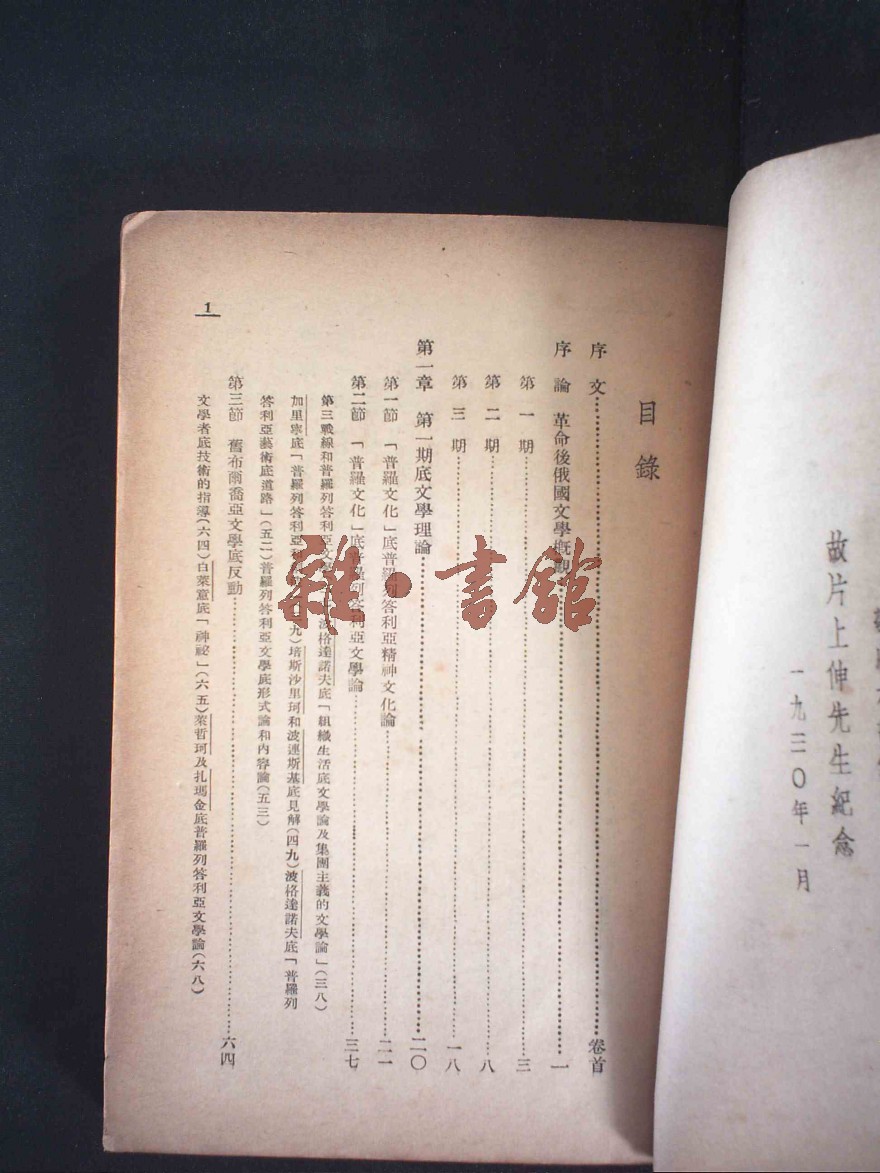 故片上伸先生紀念
一九三〇年一月
目錄
序文⋯⋯卷首
序論 革命後俄國文學概觀⋯⋯一
第一期⋯⋯三
第二期⋯⋯八
第三期⋯⋯一八
第一章 第一期底文學理論⋯⋯二〇
第一節 「普羅文化」底普羅列答利亞精神文化論⋯⋯二一
第二節 「普羅文化」底普羅列答利亞文學論⋯⋯三七
第三戰線和普羅列答利亞文學 波格達諾夫底「組織生活底文學論及集團主義的文學論」(三八)
加里寧底「普羅列答利亞 九)培斯沙里珂和波連斯基底見解(四九)波格達諾夫底「普羅列
答利亞藝術底道路」(五二)普羅列答利亞文學底形式論和內容論(五三)
第三節 舊布爾喬亞文學底反動⋯⋯六四
文學者底技術的指導(六四)白萊童底「神祕」(六五)萊哲珂及扎瑪金底普羅列答利亞文學論(六八)
1
雜·書館